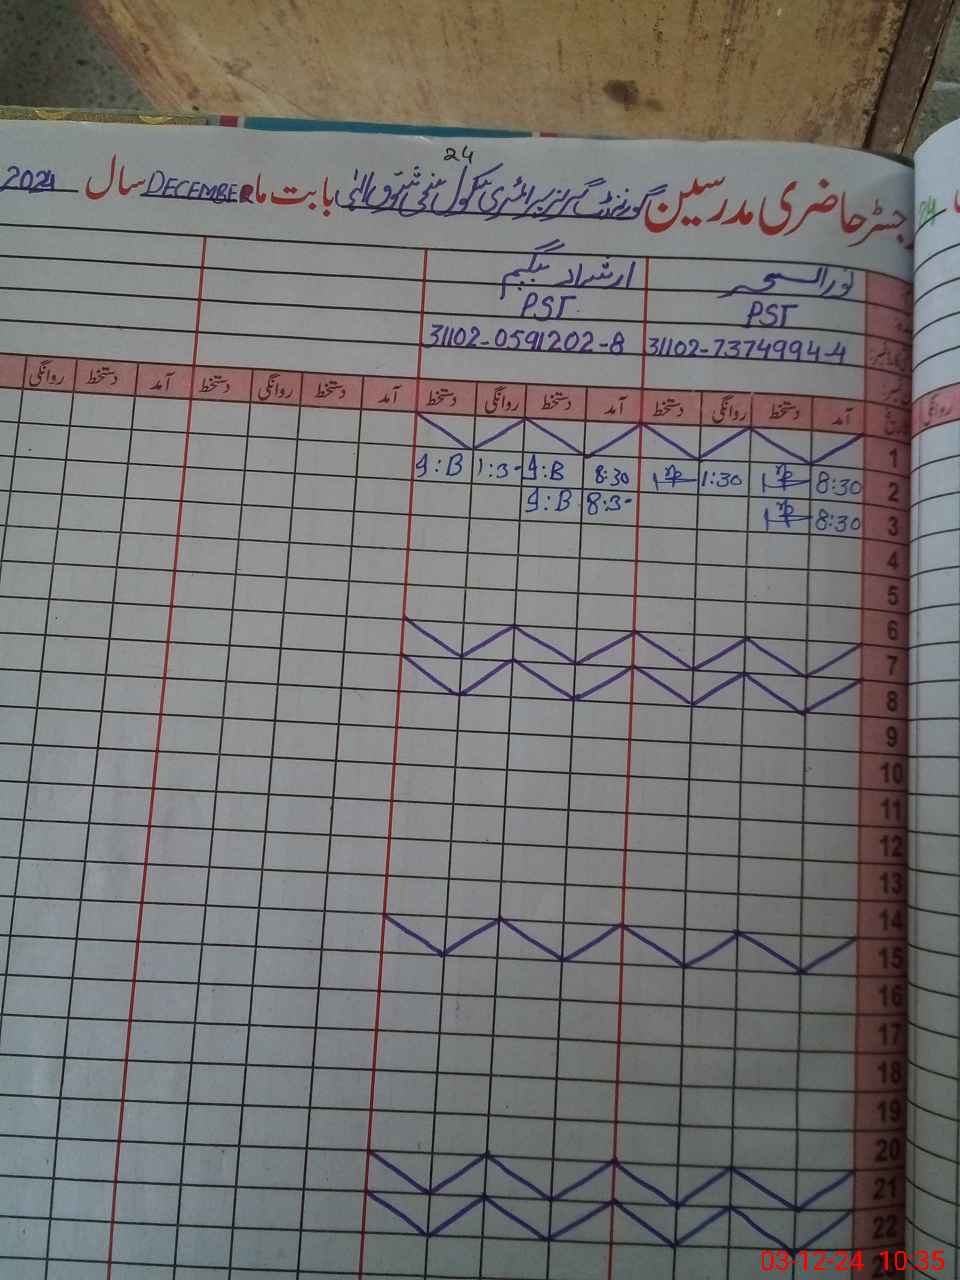 24
رجسٹر حاضری مدرسین گورنمنٹ گرلز پرائمری سکول بابت ماہ DECEMBER سال 2024
نور السحر ارشاد بیگم
PST PST
31102-7374994-4 31102-0591202-8
آمد دستخط روانگی دستخط آمد دستخط روانگی دستخط آمد دستخط روانگی دستخط آمد دستخط روانگی
روانگی
1
2 8:30 1:30 8:30 I:B 1:30 I:B
3 8:30 8:30 I:B
4
5
6
7
8
9
10
11
12
13
14
15
16
17
18
19
20
21
22
03-12-24 10:35